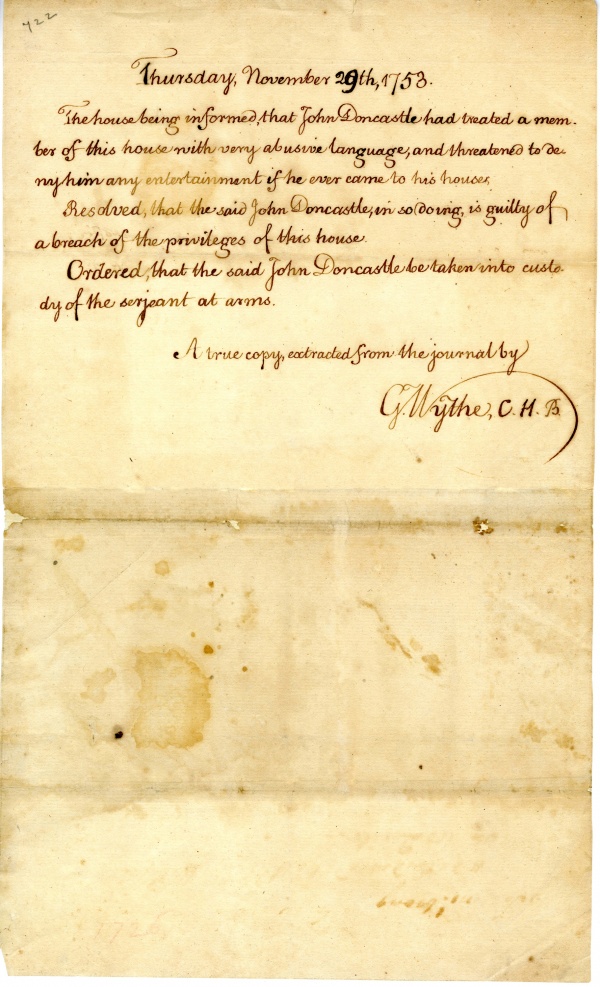 722
Thursday, November 29th, 1753.
The house being informed, that John Doncastle had treated a mem-
ber of this house with very abusive language, and threatened to de-
ny him any entertainment if he ever came to his house,
Resolved, that the said John Doncastle, in so doing, is guilty of
a breach of the privileges of this house.
Ordered, that the said John Doncastle be taken into custo-
dy of the serjeant at arms.
A true copy, extracted from the journal by
G. Wythe, C. H. B